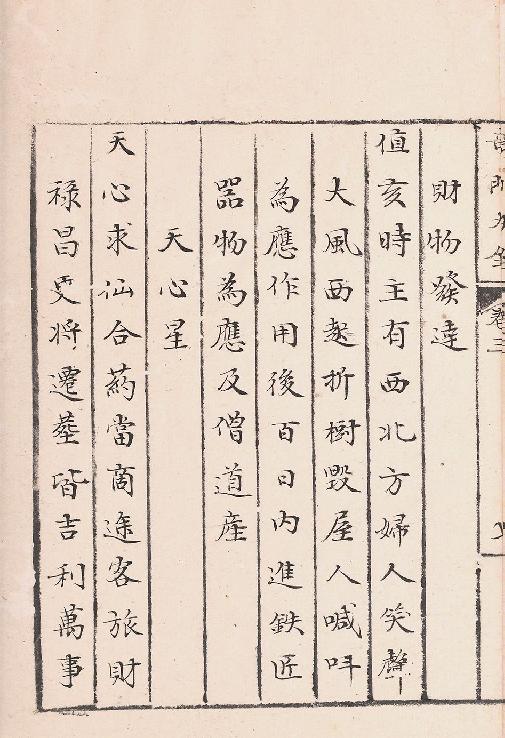 卷三
財物發達
值亥時主有西北方婦人笑聲
大風西起折樹毀屋人喊叫
為應作用後百日内進鉄匠
器物為應及僧道産
天心星
天心求仙合药當商途客旅財
禄昌吏将遷塟皆吉利萬事